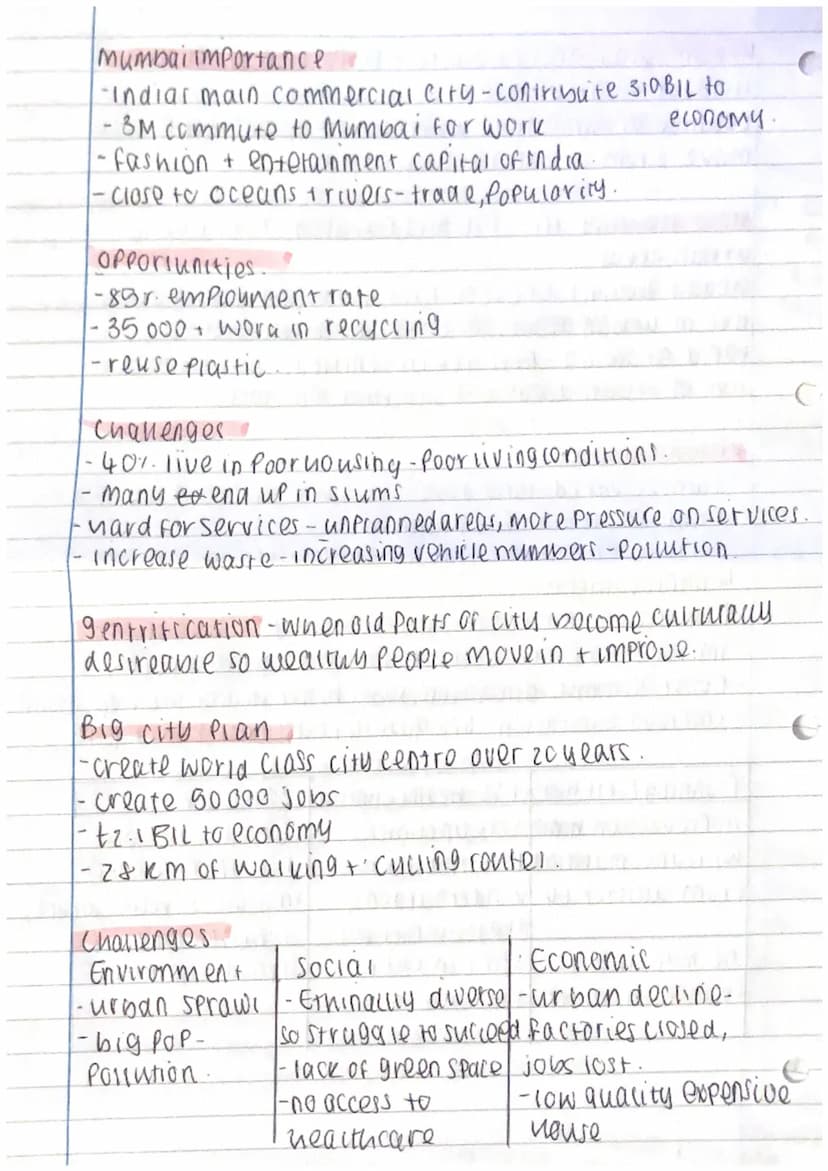 Mumbai importance
-Indias main commercial city-contribute 310BIL to
economy.
- 3M commute to Mumbai for work
- fashion + entetainment capital of India.
- close to oceans + rivers-trade, popularity.
Opportunities.
-83%. employment rate
- 35 000+ work in recycling
-reuse plastic.
Challenges
- 40%. live in poor housing - poor living conditions.
- many end up in slums
- hard for services - unplanned areas, more pressure on services.
- increase waste-increasing vehicle numbers -pollution.
gentrification - when old parts of city become culturally
desireable so wealthy people move in + improve.
Big city plan
-create world class city centre over 20 years.
- create 50 000 jobs
- £2.1 BIL to economy
- 28 km of walking + cycling routes.
Challenges
Environment
-urban sprawl
-big pop-
pollution.
social
- Ethinacllly diverse
so struggle to succeed
- lack of green space
-no access to
healthcare
Economic
-urban decline-
factories closed,
jobs lost.
-low quality expensive
house